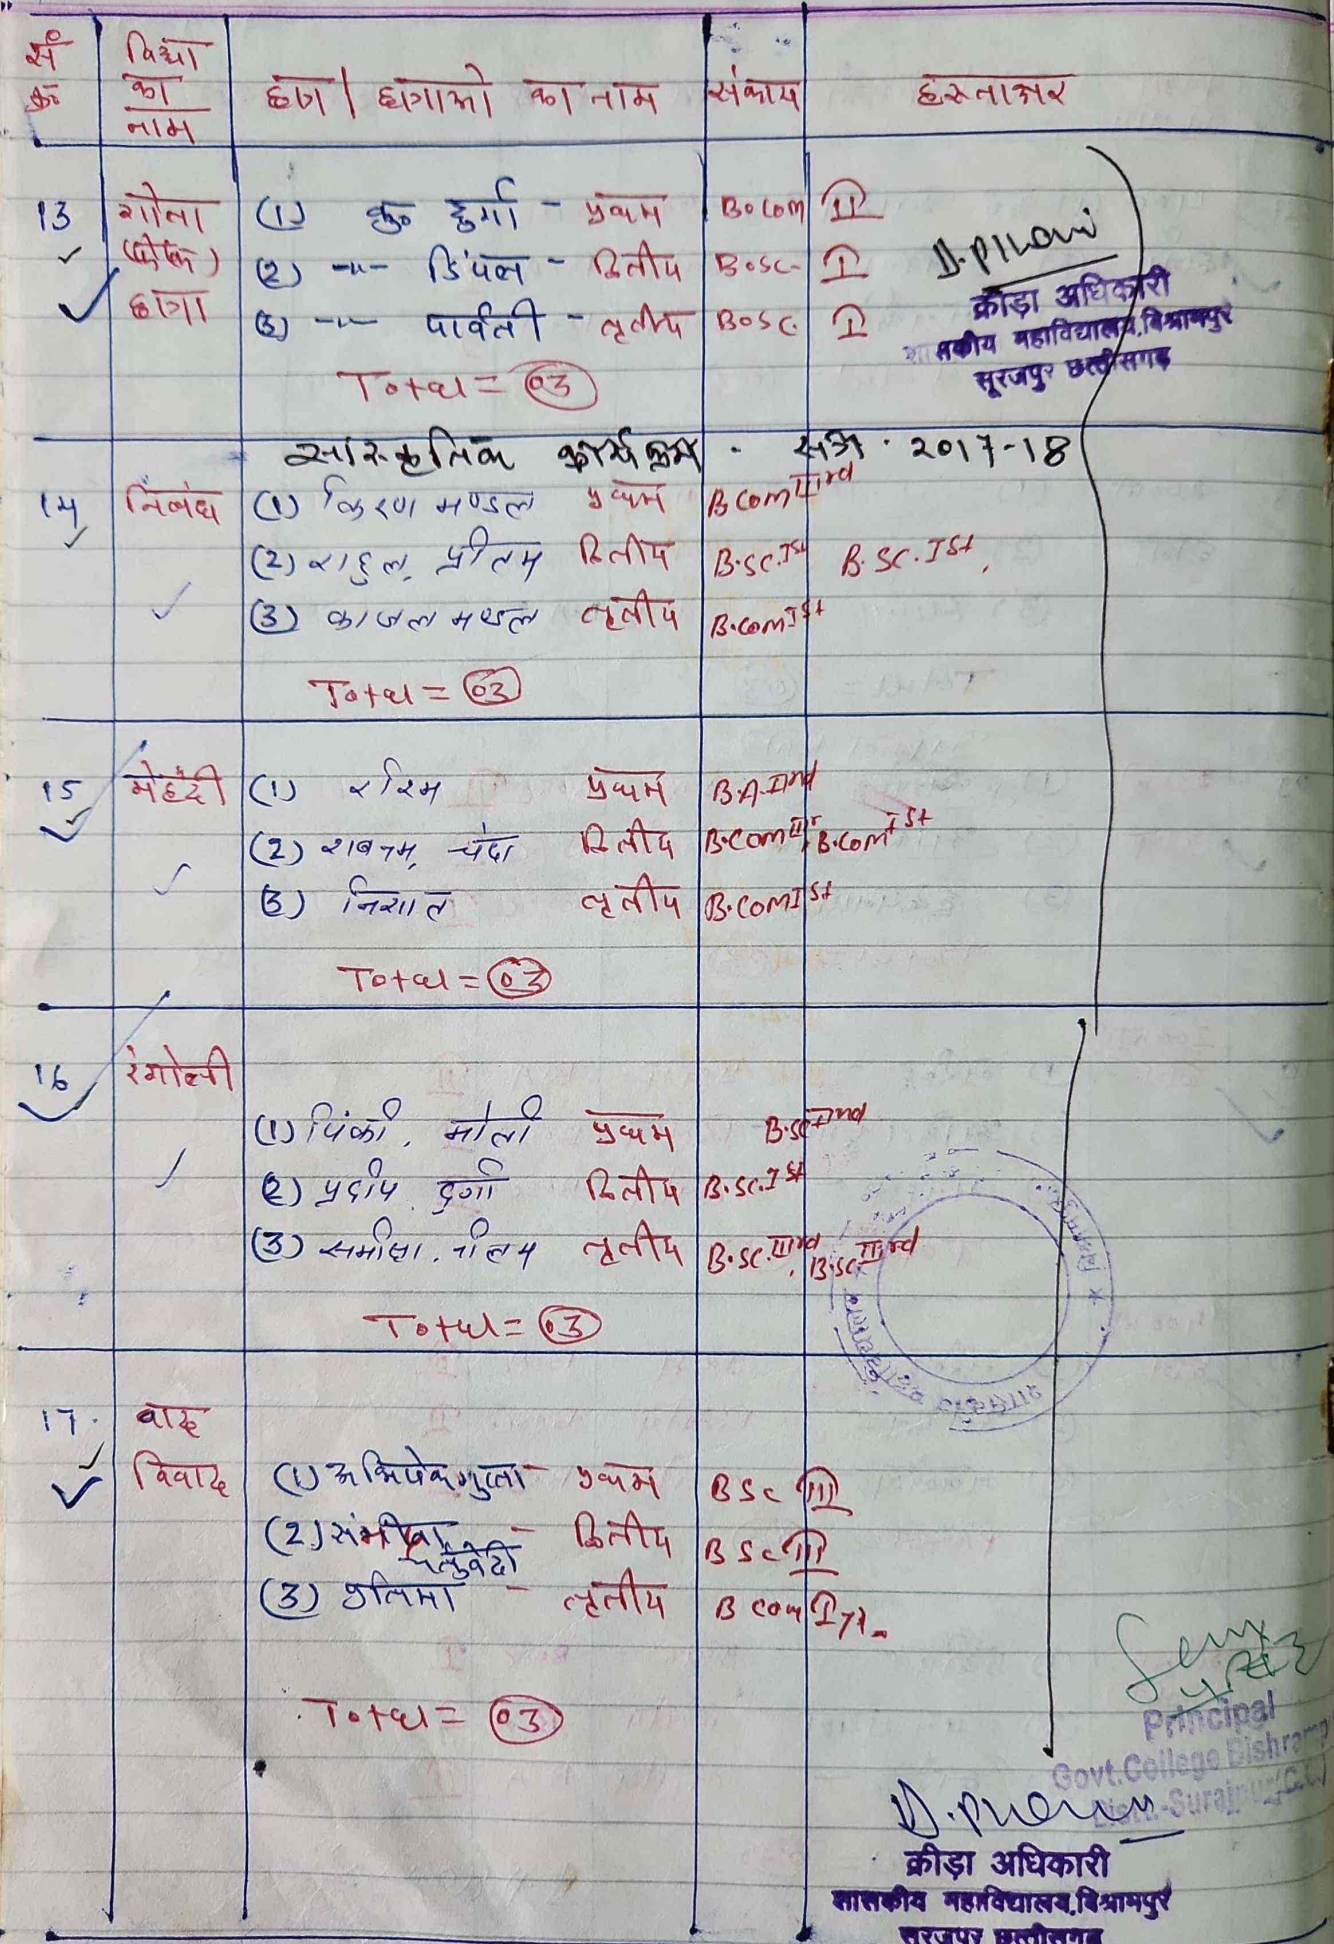 सं क्र. | विधा का नाम | छात्र / छात्राओ का नाम | संकाय | हस्ताक्षर
13 गोला (फेंक) छात्रा
(1) कु0 दुर्गा - प्रथम B.com II
(2) -"- डिंपल - द्वितीय B.sc- I
(3) -"- पार्वती - तृतीय B.sc. I
Total = 03
क्रीड़ा अधिकारी
शासकीय महाविद्यालय, विश्रामपुर
सूरजपुर छत्तीसगढ़
सांस्कृतिक कार्यक्रम - सत्र - 2017-18
14 निबंध
(1) किरण मण्डल प्रथम B Com IIIrd
(2) राहुल, प्रीतम द्वितीय B.sc. Ist B.SC. Ist,
(3) काजल मण्डल तृतीय B.com Ist
Total = 03
15 मेहंदी
(1) रश्मि प्रथम B.A IInd
(2) शबनम, चंदा द्वितीय B.Com B.com Ist
(3) निशात तृतीय B.Com Ist
Total = 03
16 रंगोली
(1) पिंकी, मोती प्रथम B.sc IInd
(2) प्रदीप दुर्गा द्वितीय B.sc. Ist
(3) समीक्षा, नीलम तृतीय B.sc. IIIrd, B.sc. IIIrd
Total = 03
17. वाद विवाद
(1) अभिषेक गुप्ता - प्रथम B Sc III
(2) समीक्षा चतुर्वेदी - द्वितीय B Sc III
(3) - तृतीय B com I yr.
Total = 03
Principal
Govt. College Bishrampur
Distt.-Surajpur (C.G.)
क्रीड़ा अधिकारी
शासकीय महाविद्यालय, विश्रामपुर
सूरजपुर छत्तीसगढ़